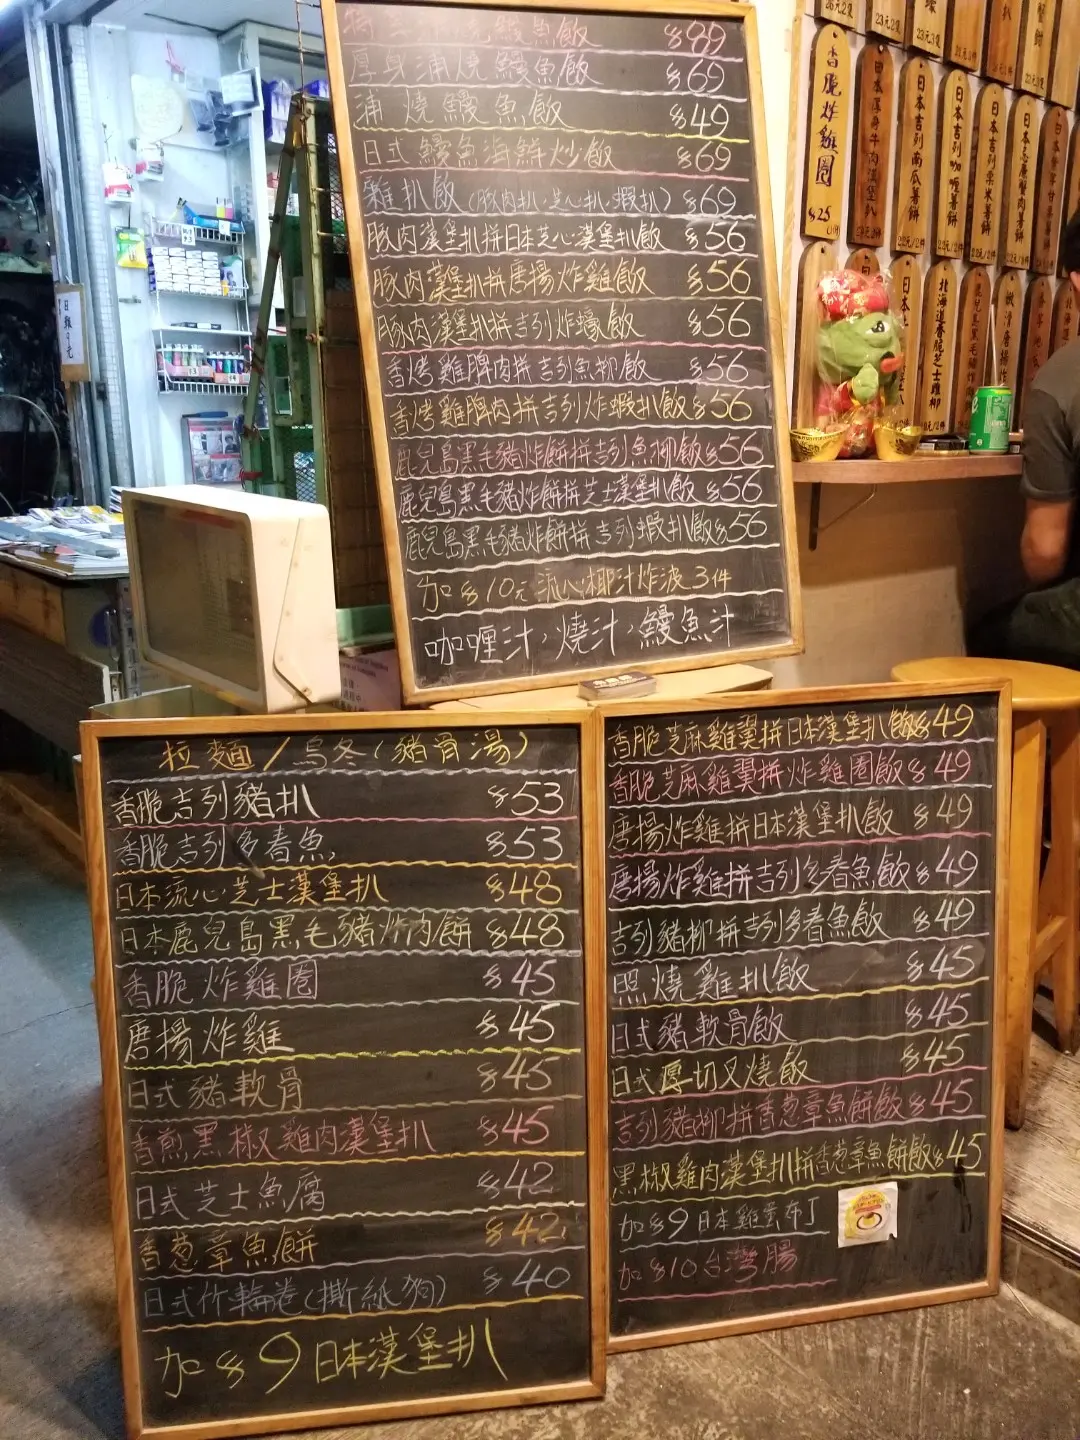 燒鰻魚飯 $89
厚身浦燒鰻魚飯 $69
浦燒鰻魚飯 $49
日式鰻魚海鮮炒飯 $69
雞扒飯(豚肉扒.芝心扒.蝦扒) $69
豚肉漢堡扒拼日本芝心漢堡扒飯 $56
豚肉漢堡扒拼唐揚炸雞飯 $56
豚肉漢堡扒拼吉列炸蠔飯 $56
香烤雞脾肉拼吉列魚柳飯 $56
香烤雞脾肉拼吉列炸蝦扒飯 $56
鹿兒島黑毛豬炸餅拼吉列魚柳飯 $56
鹿兒島黑毛豬炸餅拼芝士漢堡扒飯 $56
鹿兒島黑毛豬炸餅拼吉列蝦扒飯 $56
加$10元流心椰汁炸波3件
咖喱汁，燒汁，鰻魚汁
拉麵/烏冬(豬骨湯)
香脆吉列豬扒 $53
香脆吉列多春魚 $53
日本流心芝士漢堡扒 $48
日本鹿兒島黑毛豬炸肉餅 $48
香脆炸雞圈 $45
唐揚炸雞 $45
日式豬軟骨 $45
香煎黑椒雞肉漢堡扒 $45
日式芝士魚腐 $42
香蔥章魚餅 $42
日式竹輪卷(撕紙狗) $40
加$9日本漢堡扒
香脆芝麻雞翼拼日本漢堡扒飯 $49
香脆芝麻雞翼拼炸雞圈飯 $49
唐揚炸雞拼日本漢堡扒飯 $49
唐揚炸雞拼吉列多春魚飯 $49
吉列豬柳拼吉列多春魚飯 $49
照燒雞扒飯 $45
日式豬軟骨飯 $45
日式厚切叉燒飯 $45
吉列豬柳拼香蔥章魚餅飯 $45
黑椒雞肉漢堡扒拼香蔥章魚餅飯 $45
加$9日本雞蛋布丁
加$10台灣腸
香脆炸雞圈 $25
日本厚身牛肉漢堡扒
日本吉列南瓜薯餅 22元/2件
日本吉列咖喱薯餅
日本吉列粟米薯餅
北海道香脆芝士雞柳